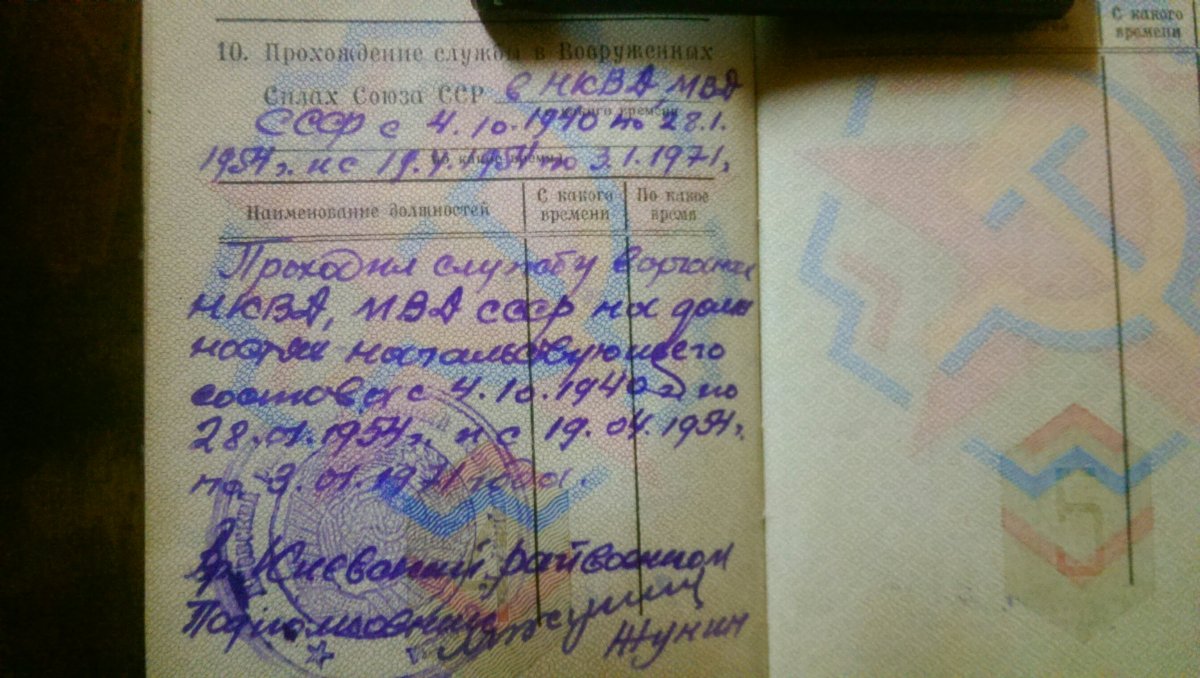 10. Прохождение службы в Вооруженных
Силах Союза ССР в НКВД, МВД
СССР с 4.10.1940 по 28.1.
1954г. и с 19.4.1954 по 3.1.1971г.
Наименование должностей
С какого времени
По какое время
Проходил службу в органах
НКВД, МВД СССР на долж
ностях начальствующего
состава с 4.10.1940г по
28.01.1954г. и с 19.04.1954г.
по 3.01.1971 года.
райвоенком
Подполковник
Жунин
С какого
времени